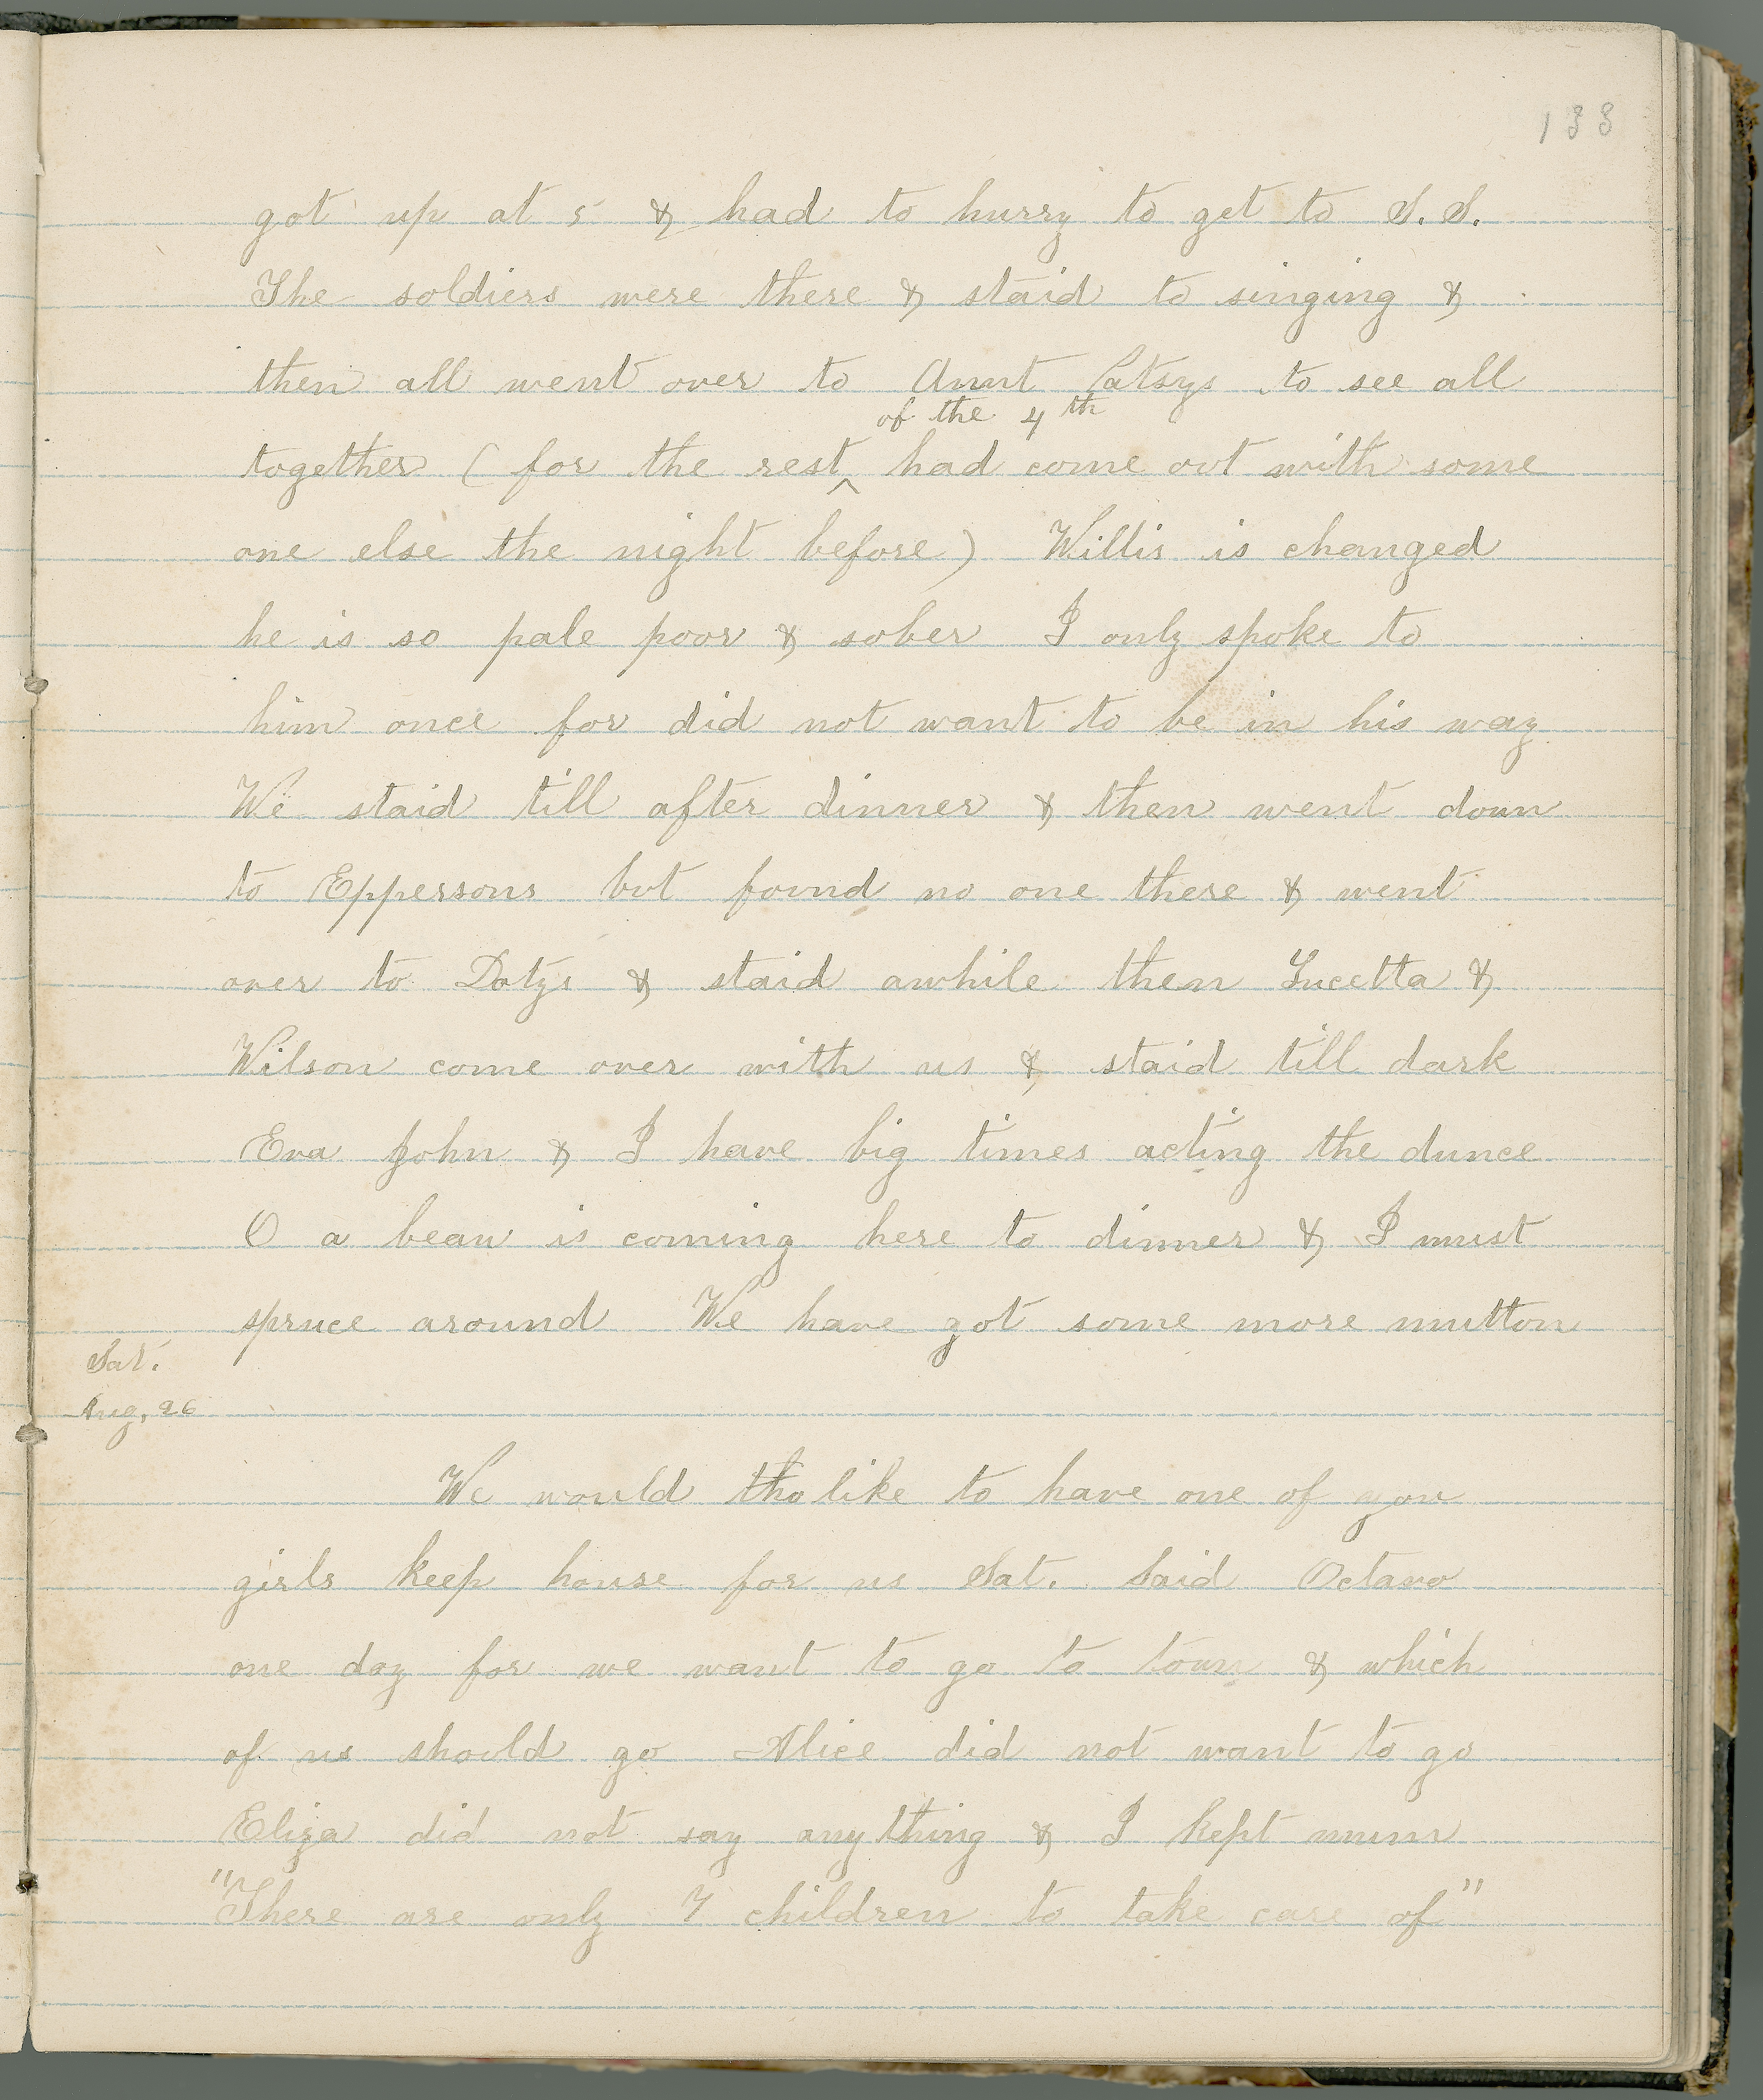 133
got up at 5 & had to hurry to get to S. S.
The soldiers were there & staid to singing &
then all went over to Aunt Patsys to see all
of the 4th
together ( for the rest ^ had come out with some
one else the night before) Willis is changed
he is so pale poor & sober I only spoke to
him once for did not want to be in his way
We staid till after dinner & then went down
to Eppersons but found no one there & went
over to Dotys & staid awhile then Lucetta &
Wilson come over with us & staid till dark
Eva John & I have big times acting the dunce
O a beau is coming here to dinner & I must
spruce around We have got some more mutton
Sat.
Aug. 26
We would tho like to have one of you
girls keep house for us Sat. Said Octavo
one day for we want to go to town & which
of us should go Alice did not want to go
Eliza did not say any thing & I kept mum
"There are only 7 children to take care of"